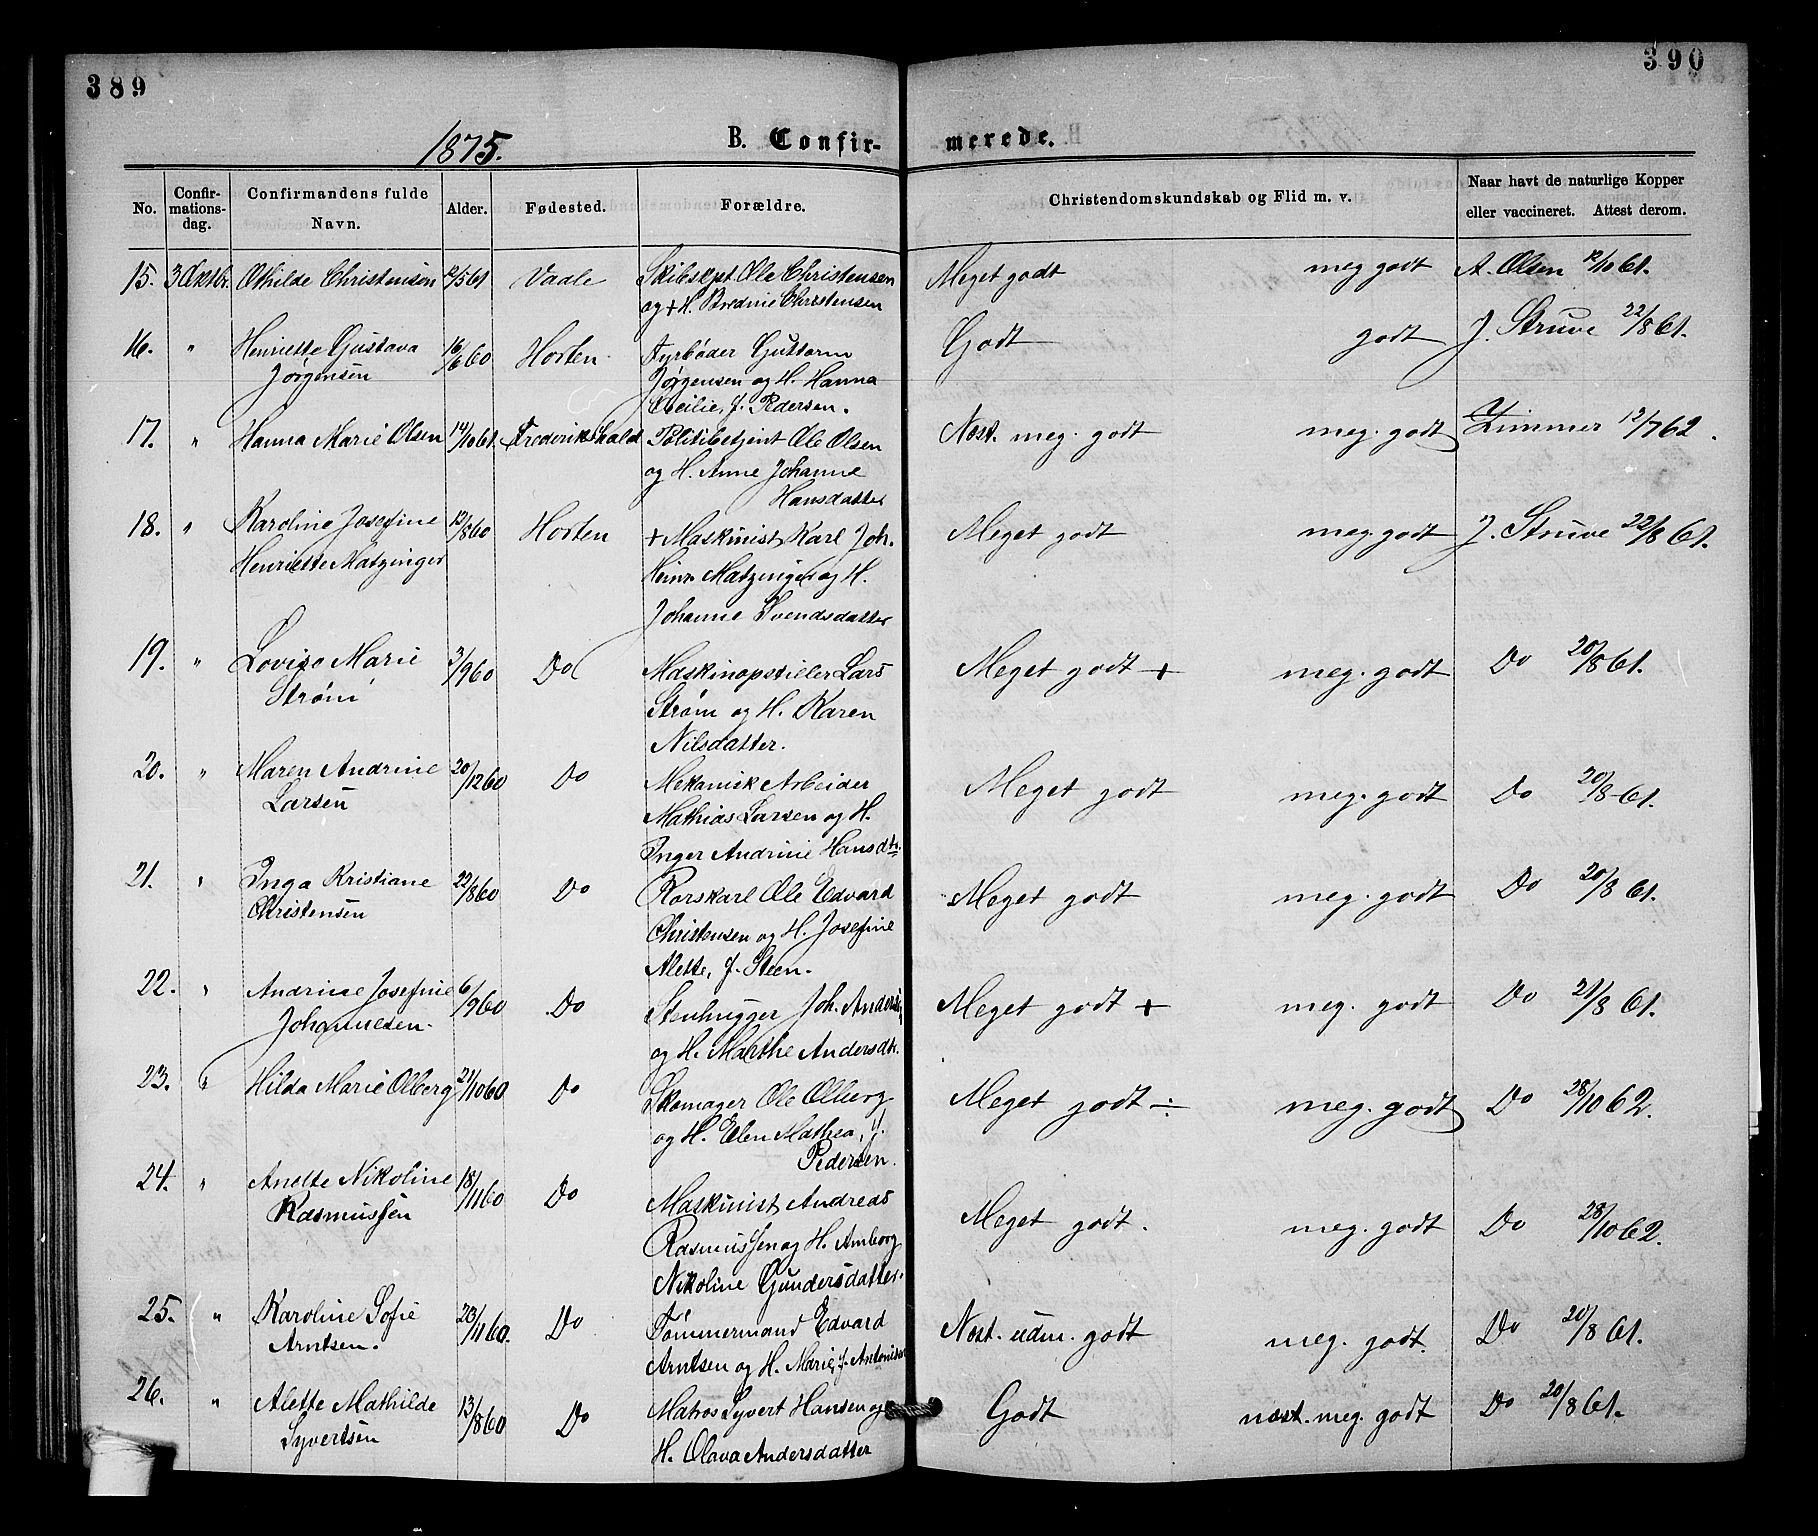 389
390
1875.
B. Confir-
merede.
No.
Confir-
mations-
dag.
Confirmandens fulde
Navn.
Alder.
Fødested.
Forældre.
Christendomskundskab og Flid m. v.
Naar havt de naturlige Kopper
eller vaccineret. Attest derom.
15. 3 Octbr. Othilde Christensen 12/5 61 Vaale Skibskpt. Ole Christensen Meget godt meg godt A. Olsen 12/10 61.
og + H. Bredine Christensen
16. " Henriette Gustava 16/6 60 Horten. Fyrbøder Guttorm Godt godt J. Struve 22/8 61.
Jørgensen Jørgensen og H. Hanna
Cecilie, f. Pedersen.
17. " Hanna Marie Olsen 14/10 61. Frederikshald Politibetjent Ole Olsen Næst. meg. godt meg. godt Zimmer 12/7 62.
og H. Anne Johanne
Hansdatter
18. " Karoline Josefine 13/8 60 Horten + Maskinist Karl Joh. Meget godt meg. godt J. Struve 22/8 61.
Henriette Matzinger Heinr. Matzinger og H.
Johanne Svendsdatter
19. " Lovise Marie 3/9 60 Do Maskinopstiller Lars Meget godt + meg. godt Do 20/8 61.
Strøm Strøm og H. Karen
Nilsdatter.
20. " Maren Andrine 20/12 60 Do Mekanisk Arbeider Meget godt meg. godt Do 20/8 61.
Larsen Mathias Larsen og H.
Inger Andrine Hansdtr.
21. " Inga Kristiane 22/8 60 Do Rorskarl Ole Edvard Meget godt meg. godt Do 20/8 61.
Christensen Christensen og H. Josefine
Alette, f. Steen.
22. " Andrine Josefine 6/9 60 Do Stenhugger Joh. Andersen Meget godt + meg. godt Do 21/8 61.
Johannesen. og H. Marthe Andersdtr.
23. " Hilda Marie Olberg 21/10 60 Do Skomager Ole Olberg Meget godt ÷ meg. godt Do 28/10 62.
og H. Elen Mathea, f.
Pedersen.
24. " Anette Nikoline 18/11 60 Do Maskinist Andreas Meget godt. meg. godt Do 28/10 62.
Rasmussen Rasmussen og H. Amborg
Nikoline Gundersdatter.
25. " Karoline Sofie 23/11 60. Do Tømmermand Edvard Næst. udm. godt meg. godt. Do 20/8 61.
Arntsen. Arntsen og H. Marie, f. Antonisen
26. " Alette Mathilde 13/8 60 Do Matros Syvert Hansen og Godt næst. meg. godt Do 20/8 61.
Syvertsen H. Olava Andersdatter